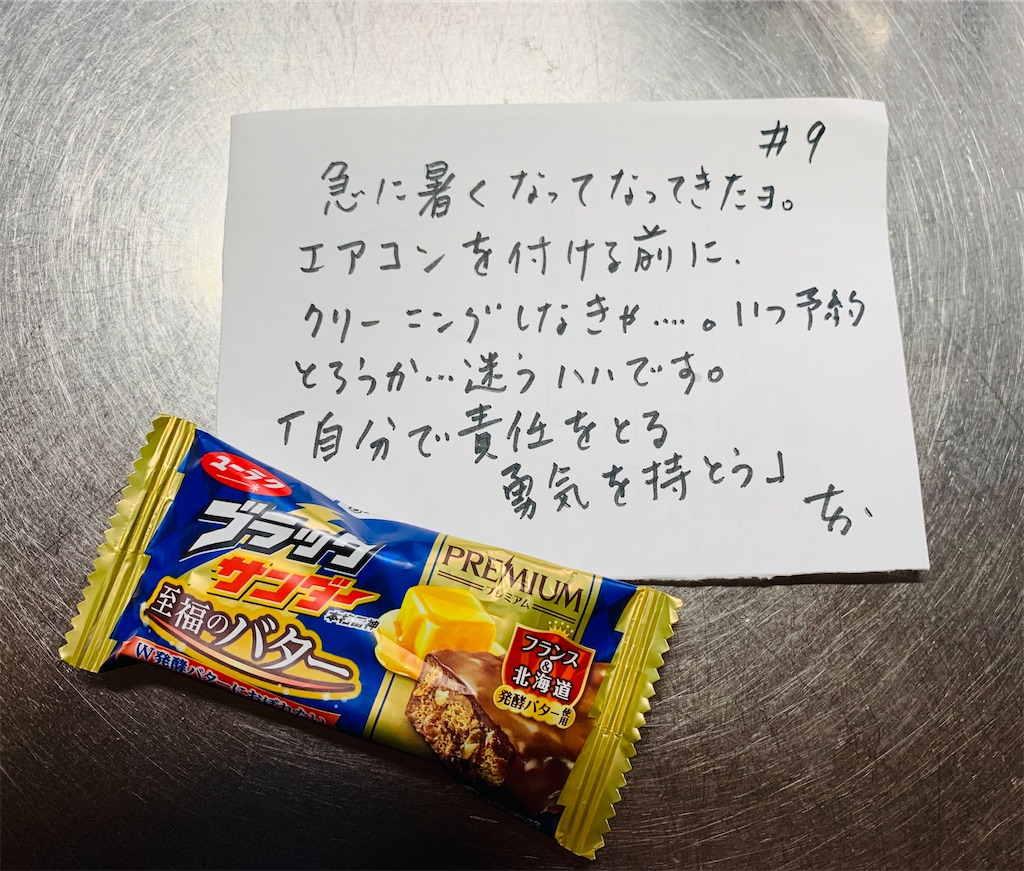 #9
急に暑くなってなってきたヨ。
エアコンを付ける前に、
クリーニングしなきゃ....。いつ予約
とろうか…迷うハハです。
「自分で責任をとる
勇気を持とう」
ちか
ユーラク
ブラック
サンダー
本格雷神
至福のバター
W発酵バターにおぼれたい
PREMIUM
プレミアム
フランス
&
北海道
発酵バター使用